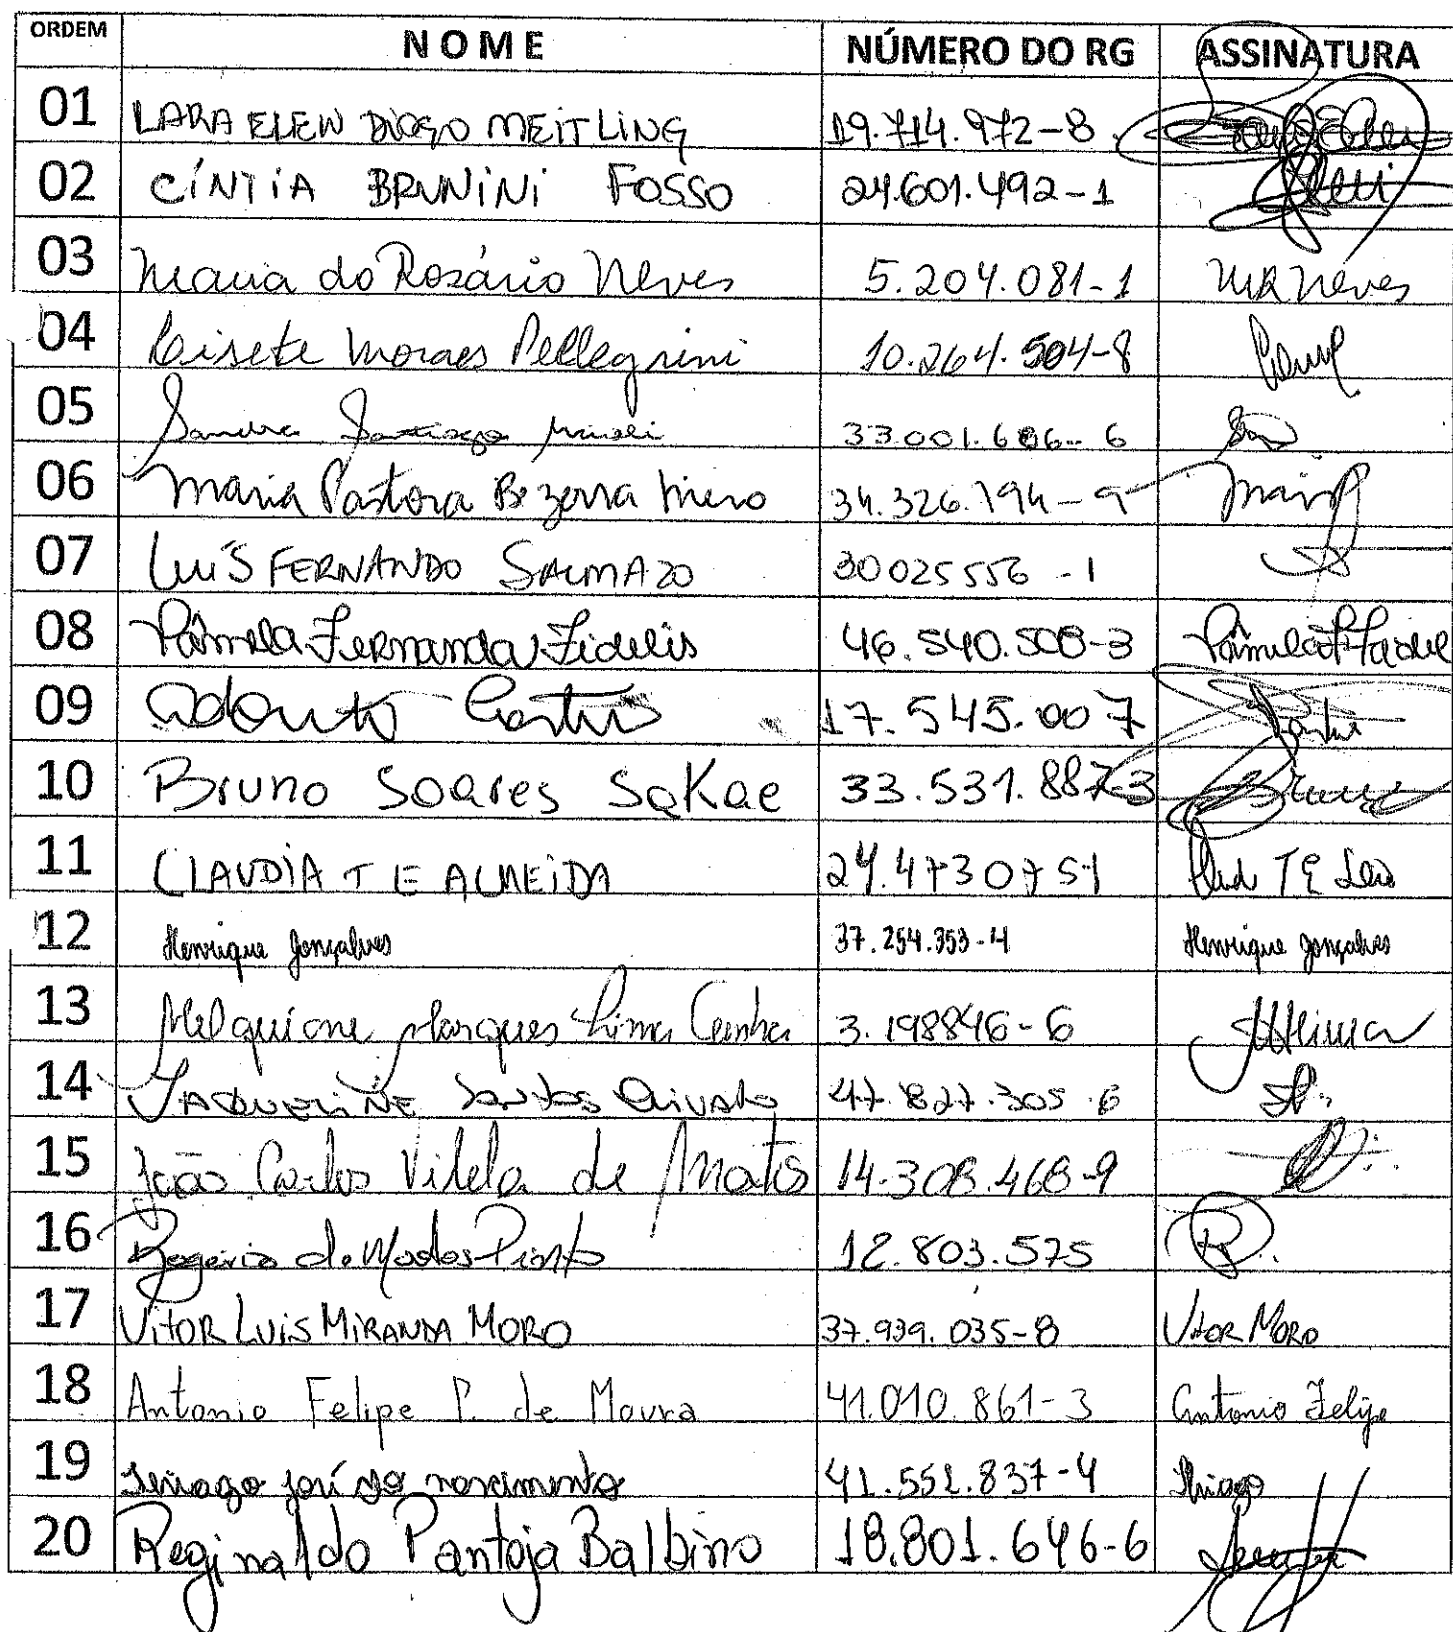 ORDEM NOME NÚMERO DO RG ASSINATURA
01 LARA ELEN DIOGO MEITLING 19.714.972-8
02 CÍNTIA BRUNINI FOSSO 24.601.492-1
03 Maria do Rozário Neves 5.204.081-1 MR Neves
04 Lisete Moraes Pellegrini 10.264.504-8
05 Sandra Santiago 33.001.686-6
06 Maria Pastora Bezerra 34.326.194-9
07 LUÍS FERNANDO SALMAZO 30025556-1
08 Pâmela Fernanda Fidelis 46.540.508-3
09 17.545.007
10 Bruno Soares Sakae 33.531.887-3 Bruno
11 CLAUDIA T E ALMEIDA 24.4730751
12 Henrique Gonçalves 37.254.353-4 Henrique Gonçalves
13 Melquione Marques Lima Cunha 3.198846-6
14 JAQUELINE Santos 47.827.305-6
15 João Carlos Vilela de Matos 14.308.468-9
16 Rogério de 12.803.575
17 VITOR LUIS MIRANDA MORO 37.939.035-8 VITOR MORO
18 Antonio Felipe P. de Moura 41.010.861-3 Antonio Felipe
19 Thiago José do nascimento 41.552.837-4 Thiago
20 Reginaldo Pantoja Balbino 18.801.646-6